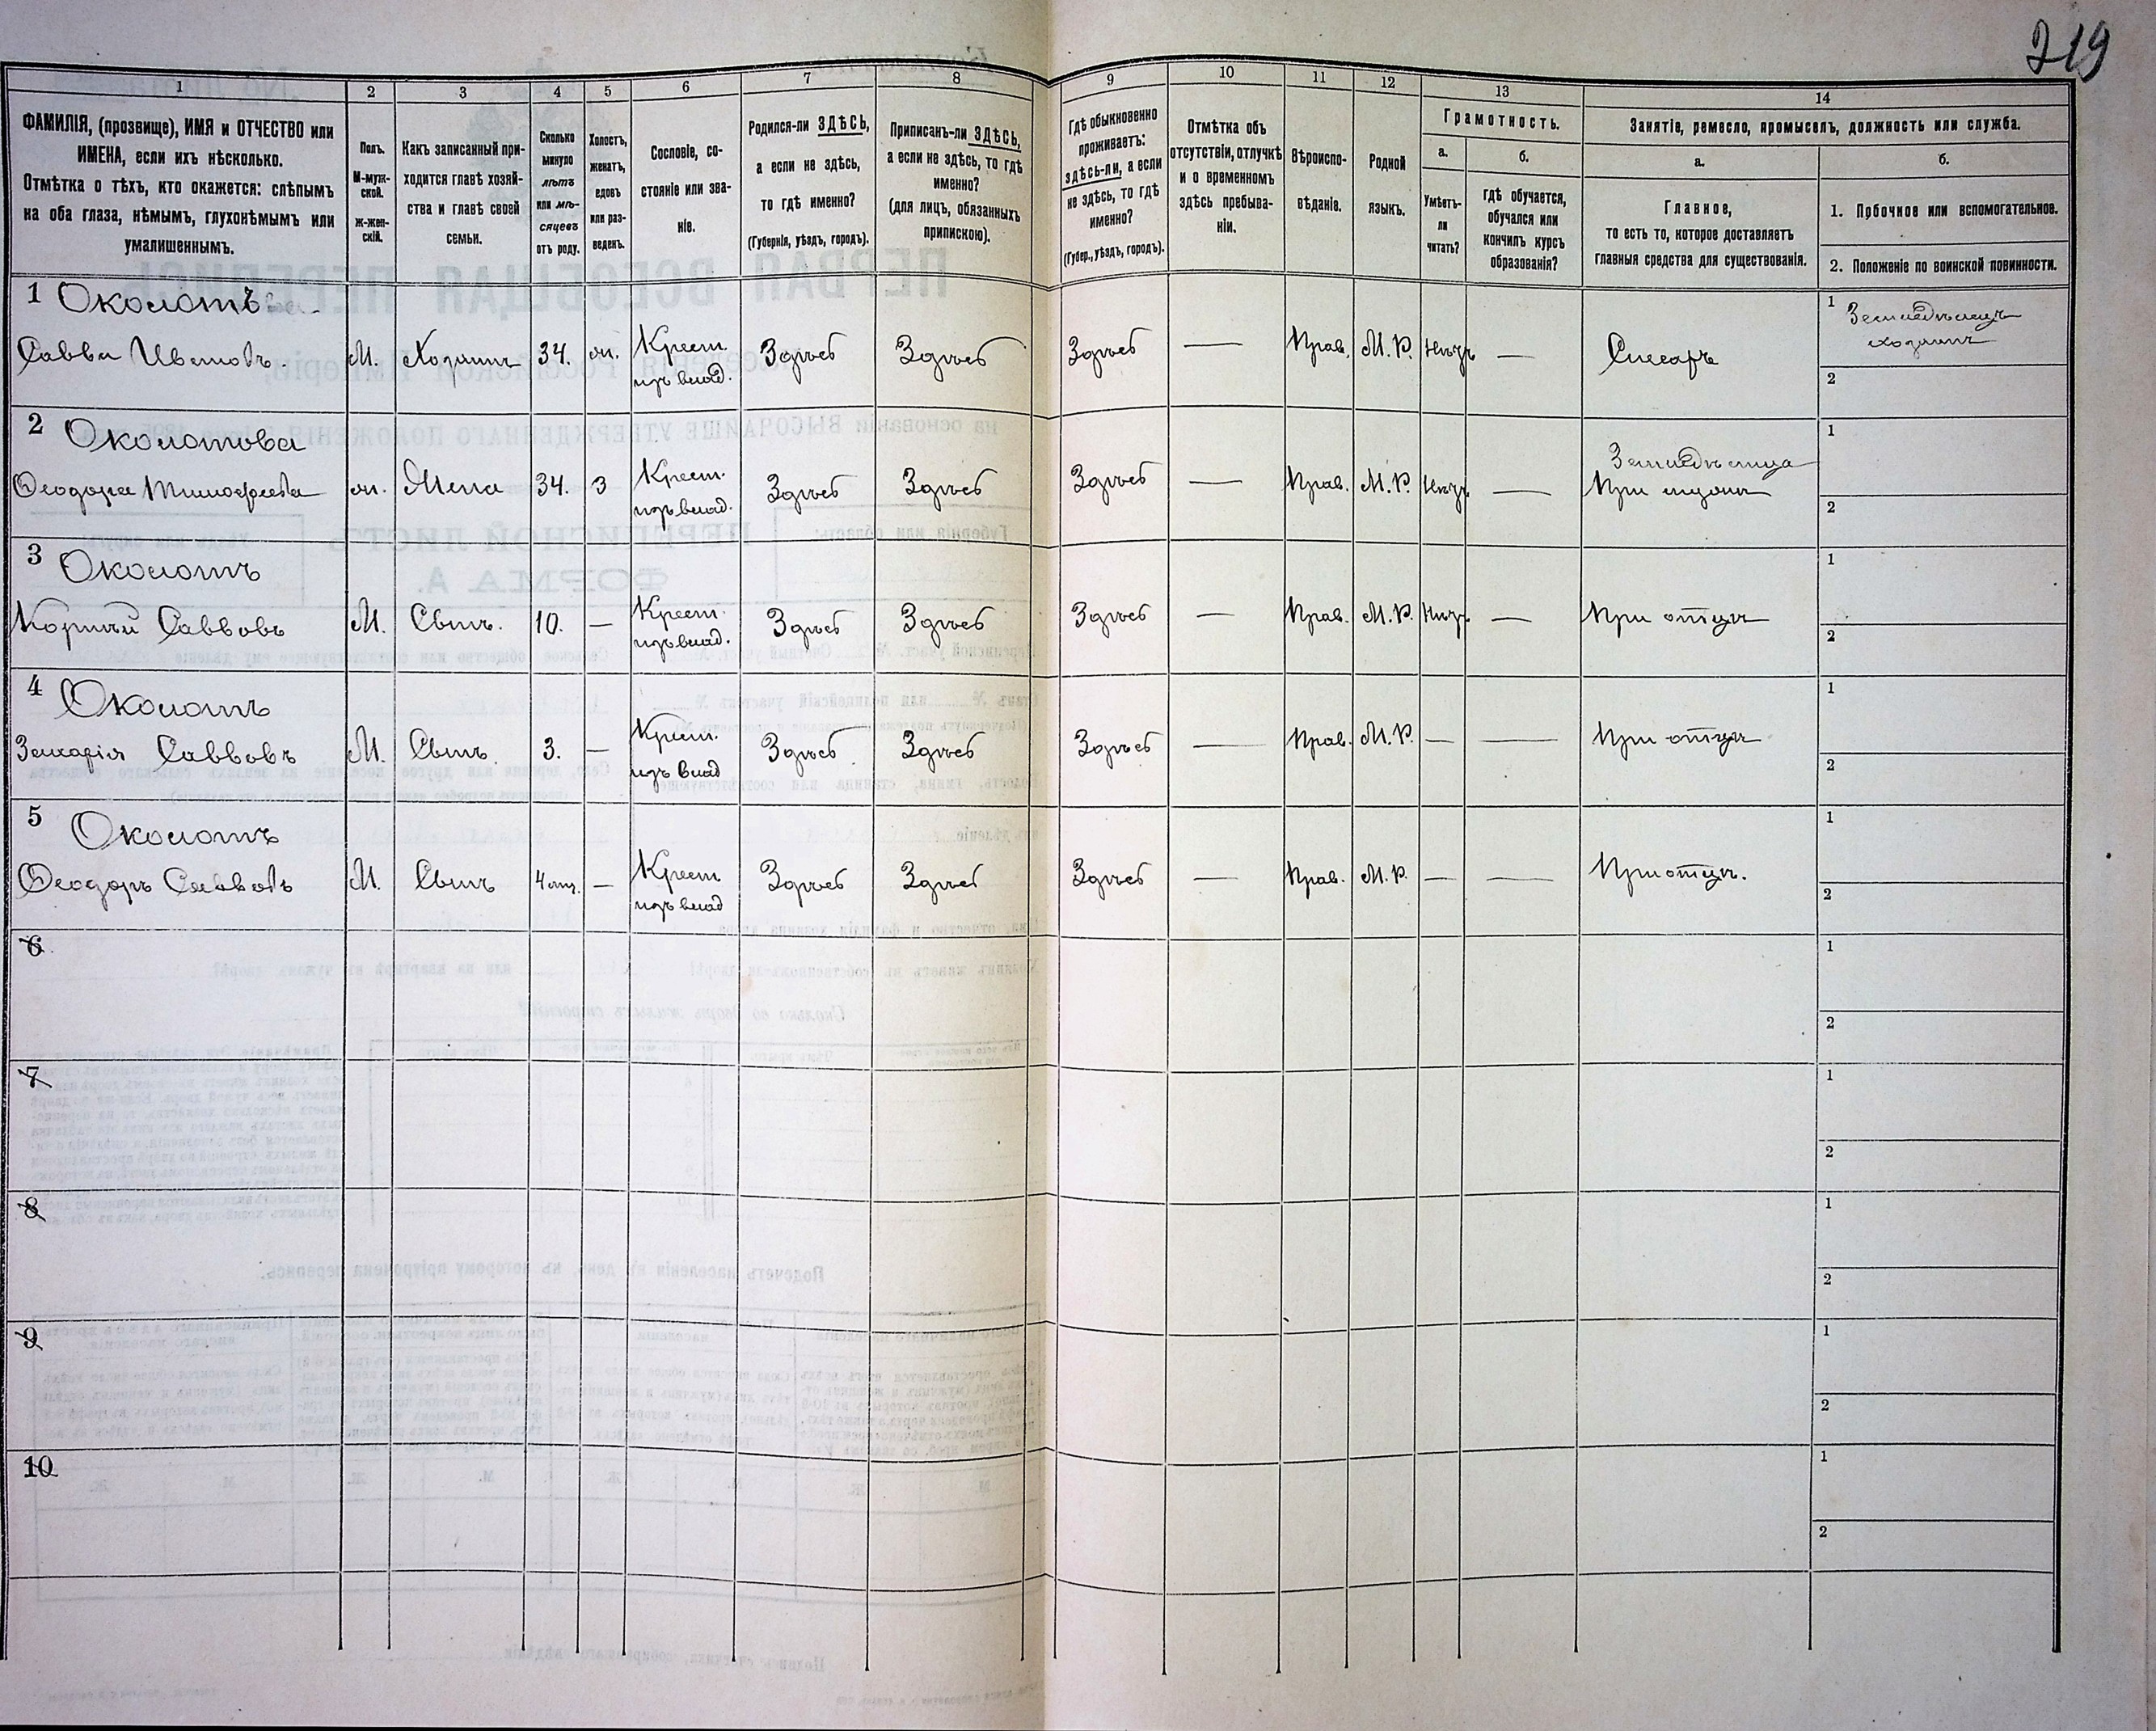 219
1
2
3
4
5
6
7
8
9
10
11
12
13
14
ФАМИЛІЯ, (прозвище), ИМЯ и ОТЧЕСТВО или
ИМЕНА, если ихъ нѣсколько.
Отмѣтка о тѣхъ, кто окажется: слѣпымъ
на оба глаза, нѣмымъ, глухонѣмымъ или
умалишеннымъ.
Полъ.
М-муж-
ской.
ж-жен-
скій.
Какъ записанный при-
ходится главѣ хозяй-
ства и главѣ своей
семьи.
Сколько
минуло
лѣтъ
или мѣ-
сяцевъ
отъ роду.
Холостъ,
женатъ,
вдовъ
или раз-
веденъ.
Сословіе, со-
стояніе или зва-
ніе.
Родился-ли ЗДѢСЬ,
а если не здѣсь,
то гдѣ именно?
(Губернія, уѣздъ, городъ).
Приписанъ-ли ЗДѢСЬ,
а если не здѣсь, то гдѣ
именно?
(для лицъ, обязанныхъ
припискою).
Гдѣ обыкновенно
проживаетъ:
здѣсь-ли, а если
не здѣсь, то гдѣ
именно?
(Губер., уѣздъ, городъ).
Отмѣтка объ
отсутствіи, отлучкѣ
и о временномъ
здѣсь пребыва-
ніи.
Вѣроиспо-
вѣданіе.
Родной
языкъ.
Грамотность.
а.
Умѣетъ-
ли
читать?
б.
гдѣ обучается,
обучался или
кончилъ курсъ
образованія?
Занятіе, ремесло, промыселъ, должность или служба.
а.
Главное,
то есть то, которое доставляетъ
главныя средства для существованія.
б.
1. Побочное или вспомогательное.
2. Положеніе по воинской повинности.
1 Околотъ
Савва Ивановъ. М. Хозяинъ 34. ж. Крест. Здѣсь Здѣсь Здѣсь — Прав. М. Р. — Слесарь 1 Земледѣлецъ
изъ влад. хозяинъ
2
2 Околотова 1
Земледѣлица
Ѳеодора Тимофеева ж. Жена 34. З Крест. Здѣсь Здѣсь Здѣсь — Прав. М. Р. — При мужѣ
изъ влад. 2
3 Околотъ 1
Корнѣй Саввовъ М. Сынъ. 10. — Крест. Здѣсь Здѣсь Здѣсь — Прав. М. Р. — При отцѣ
изъ влад. 2
4 Околотъ 1
Захарія Саввовъ М. Сынъ. 3. — Крест. Здѣсь Здѣсь Здѣсь — Прав. М. Р. — — При отцѣ
изъ влад 2
5 Околотъ 1
Ѳеодоръ Саввовъ М. Сынъ 4 мѣс. — Крест Здѣсь Здѣсь Здѣсь — Прав. М. Р. — — При отцѣ.
изъ влад 2
6 1
2
7 1
2
8 1
2
9 1
2
10 1
2